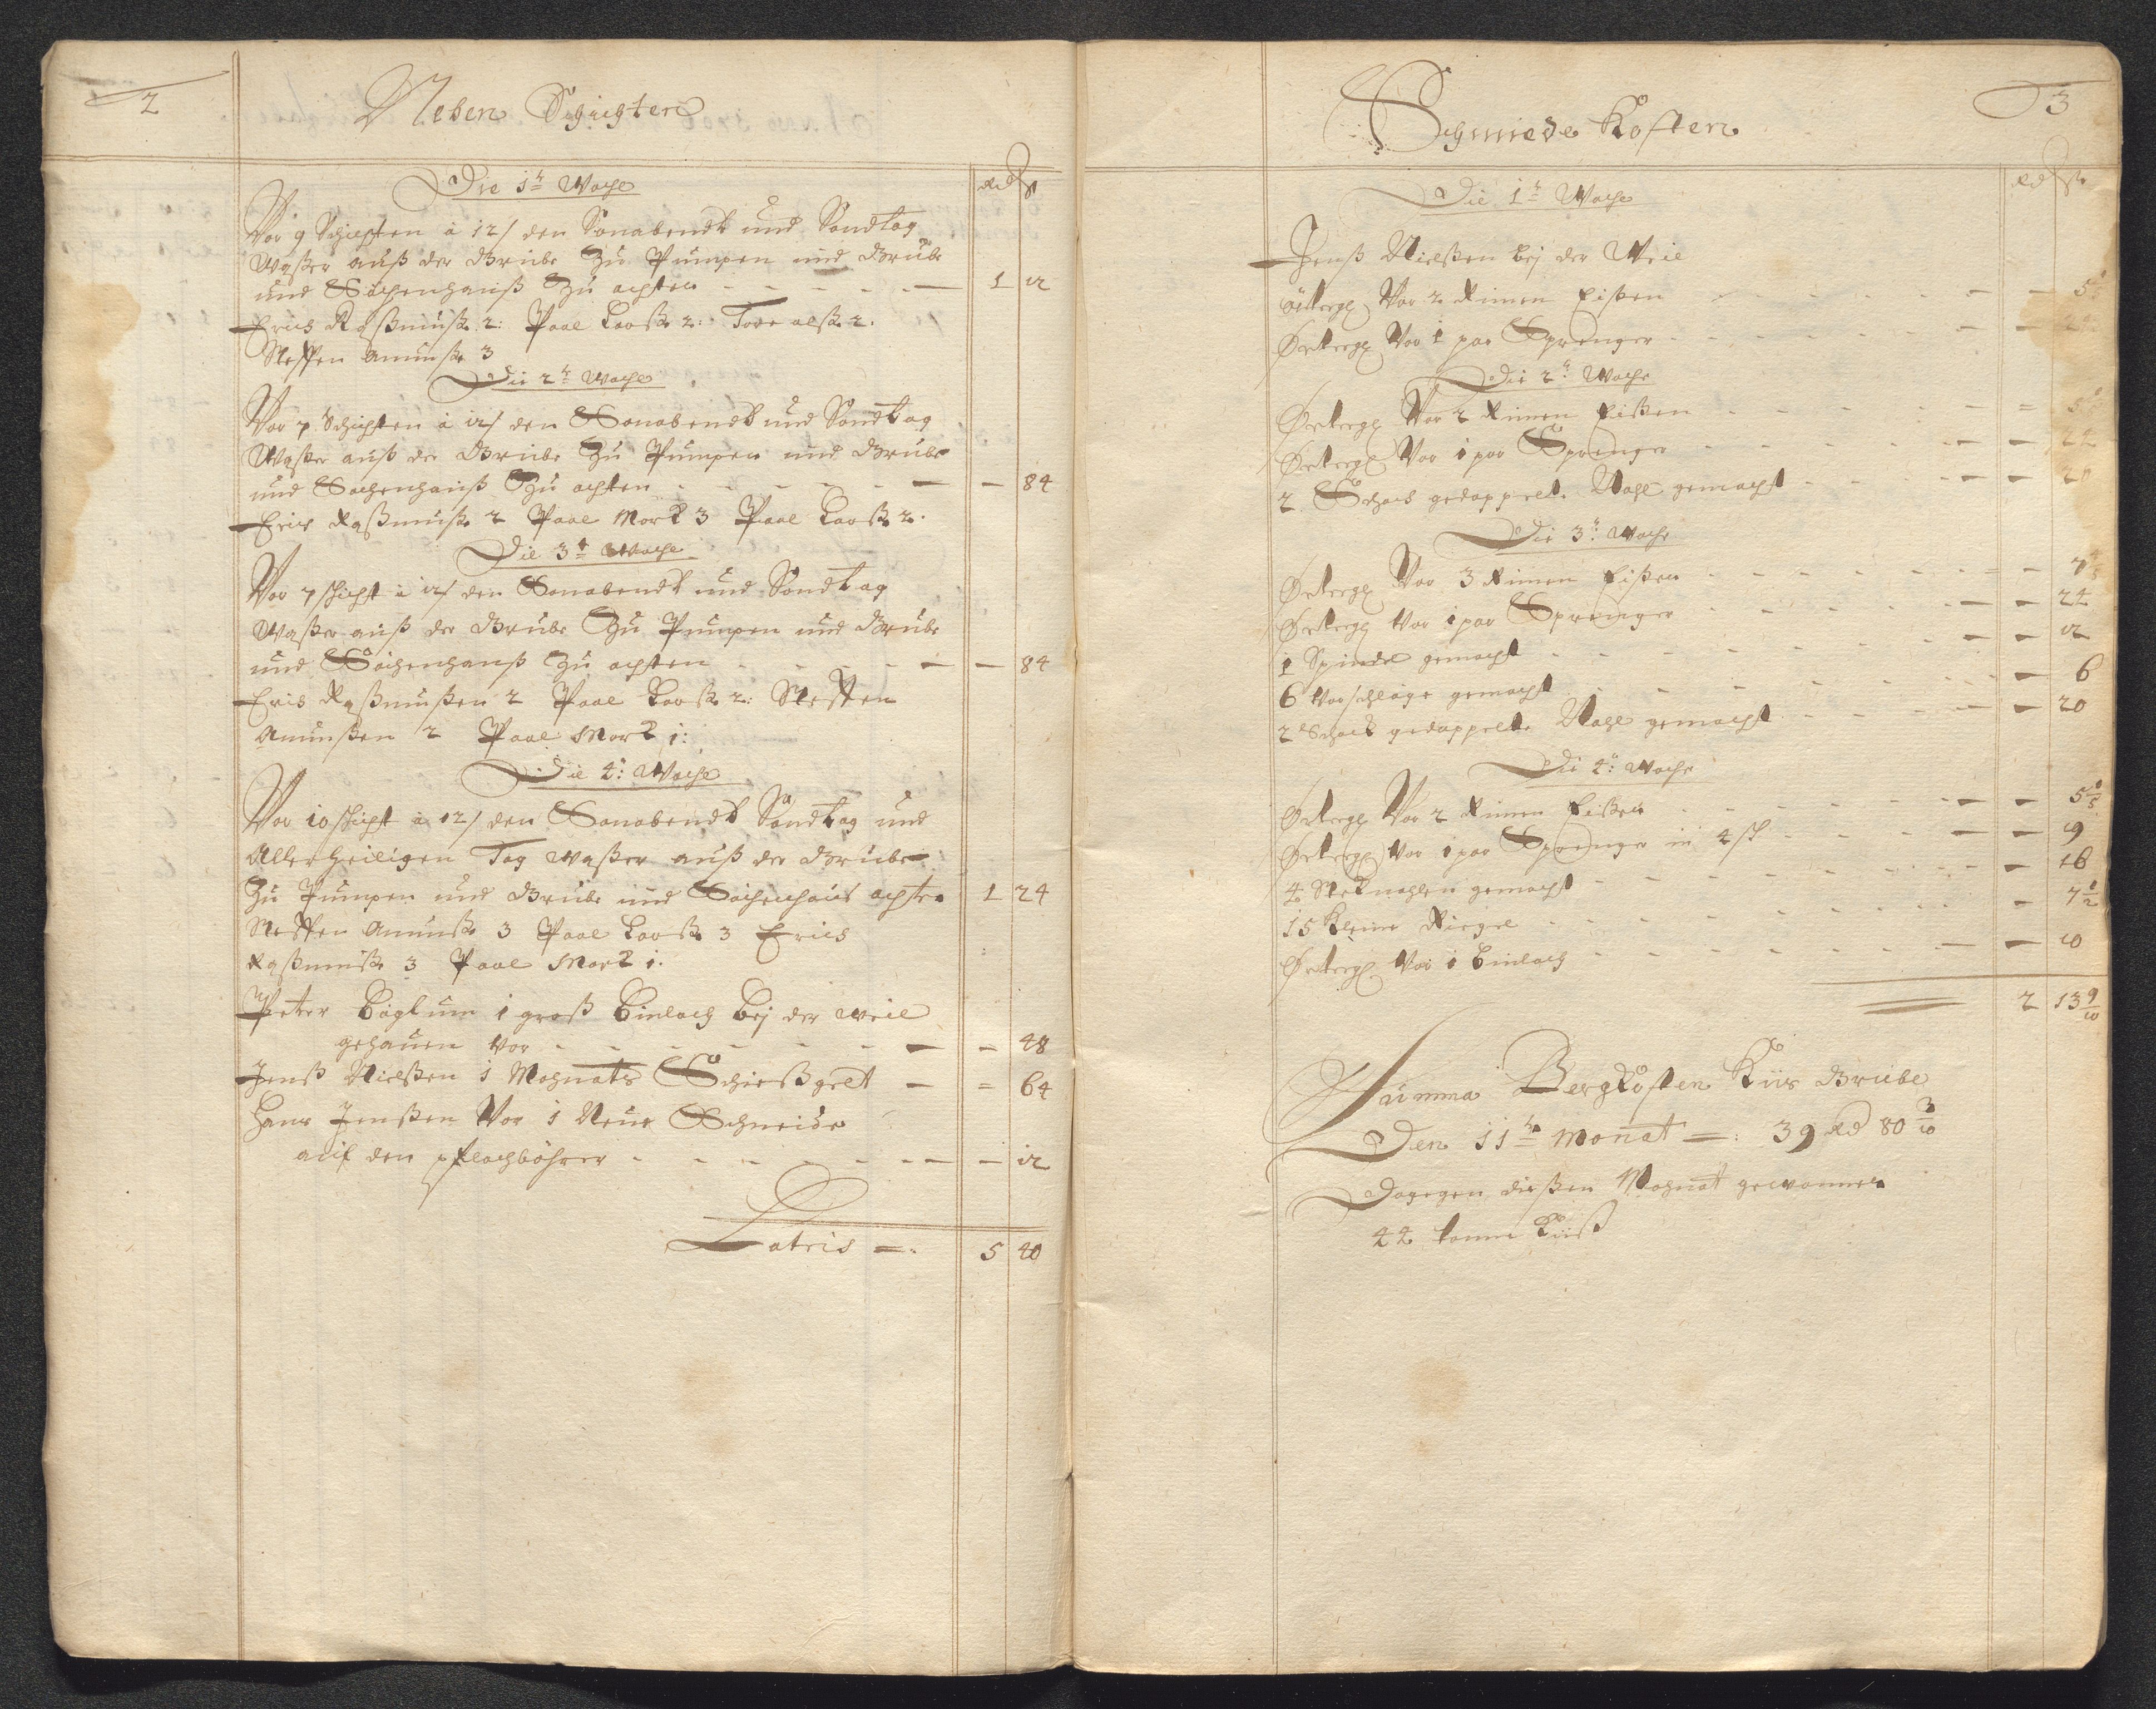 2
Neben Schichten
Rd ß
Die 1te Woche
Vor 9 Schichten à 12 ß den Sonabendt und Sondtag
Waßer auß der Grube Zu Pumpen und Grube
und Sachenhauß Zu achten - - - - - 1 12
Erics Raßmuß. 2: Paal Larß. 2: Tore alß. 2.
Steffen Amunß. 3
Die 2te Woche
Vor 7 Schichten à 12 ß den Sonabendt und Sondtag
Waßer auß der Grube Zu Pumpen und Grube
und Sachenhauß Zu achten - - - - - - 84
Erics Raßmuß. 2 Paal Mork 3 Paal Larß. 2.
Die 3te Woche
Vor 7 schicht à 12 ß den Sonabendt und Sondtag
Waßer auß der Grube Zu Pumpen und Grube
und Sachenhauß Zu achten - - - - - - 84
Erics Raßmußen 2 Paal Larß. 2: Steffen
Amunßen 2 Paal Mork 1:
Die 4te Woche
Vor 10 schicht à 12 ß den Sonabendt Sondtag und
Allerheiligen Tag Waßer auß der Grube
Zu Pumpen und Grube und Sachenhaus achten 1 24
Steffen Amunß. 3 Paal Larß. 3 Erics
Raßmuß. 3 Paal Mork 1.
Peter 1 groß Einlach bej der weil
gehauen Vor - - - - - - - 48
Jenß Nielßen 1 Mohnats Schießgelt - = 64
Hans Jenßen Vor 1 Neue Schneide
auf den pflochbohrer - - - - - - - 12
Latris =. 5 40
3
Schmiede Kosten
Rd ß
Die 1te Woche
Jenß Nielßen bej der Weil
Vor 2 Rimen Eißen - - - - - 5
Vor 1 par Sprenger - - - - - 24
Die 2te Woche
Vor 2 Rimen Eißen - - - - - = 5
Vor 1 par Sprenger - - - - - 24
2 Schock gedoppelt. Nagl gemacht - - - - 20
Die 3te Woche
Vor 3 Rimen Eißen - - - - - - 7
Vor 1 par Sprenger - - - - - 24
1 Spindel gemacht - - - - - - 12
6 Vorschläge gemacht - - - - - - 6
2 Schock gedoppelt. Nagl gemacht - - - - 20
Die 4te Woche
Vor 2 Rimen Eißen - - - - - 5
Vor 1 par Sprenger in 4 - - - - 9
4 gemacht - - - - - - 16
15 Kleine Riegel - - - - - - 7 1/2
Vor 1 Einlach - - - - - - 10
2 13 9/10
Summa Bergkosten Kiis Grube
Den 11te Monat =: 39 Rd 80 3/10
Dagegen dießen Mohnat gewonnen
44 tonne Kiiß